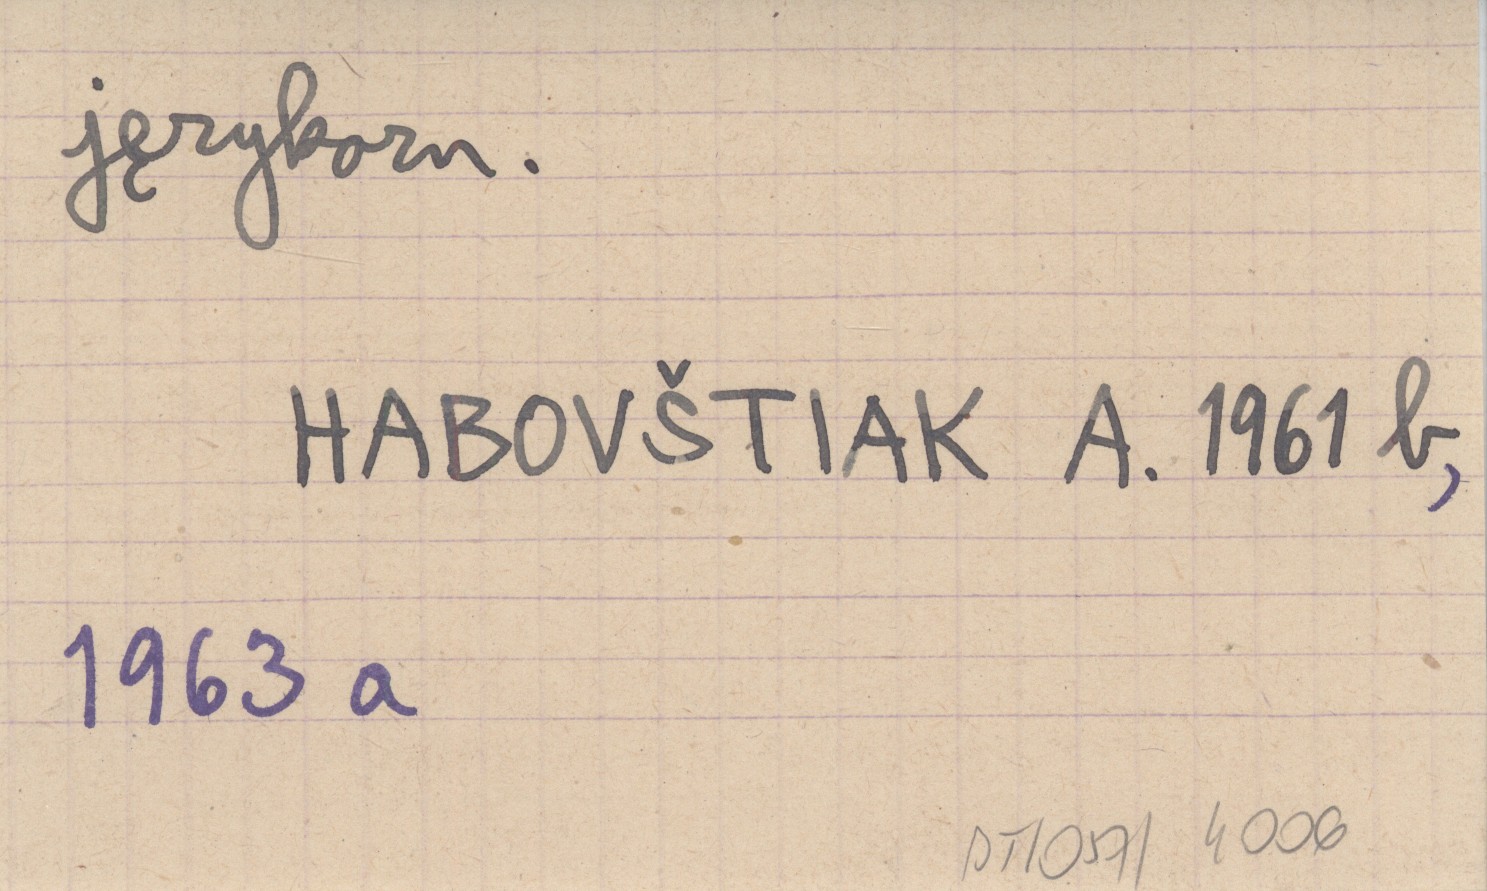 językozn.
HABOVŠTIAK A. 1961 b,
1963 a
DT/057/ 4006